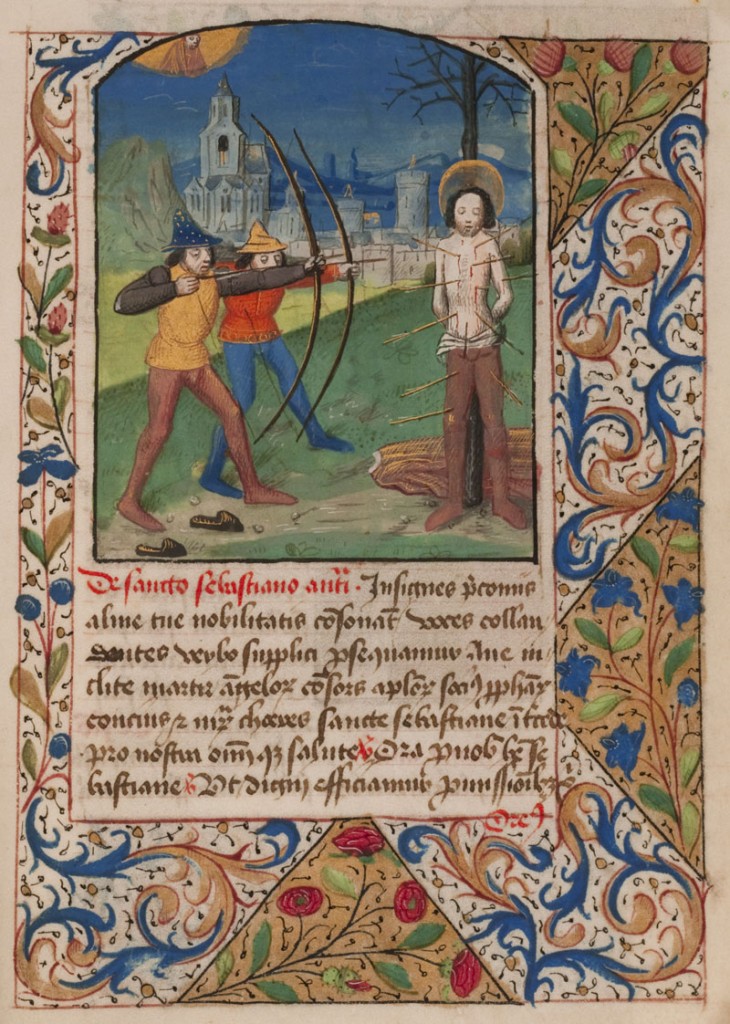 De sancto sebastiano antī · Insignes p̄coniis
alme tue nobilitatis cōsonāt voces collau
dentes verbo supplici ꝓsequamur Aue in
clite martir āgeloꝝ cōsors aploꝝ soci⁹ ꝓphāꝝ
concius ⁊ mr̄ꝝ choeres sancte sebastiane ītcede
pro nostra omi qꝫ salute ℣ Ora p nob̄ bt̄e se
bastiane ℟ Vt digni efficiamur p̱missioībꝫ x̄
Orēº